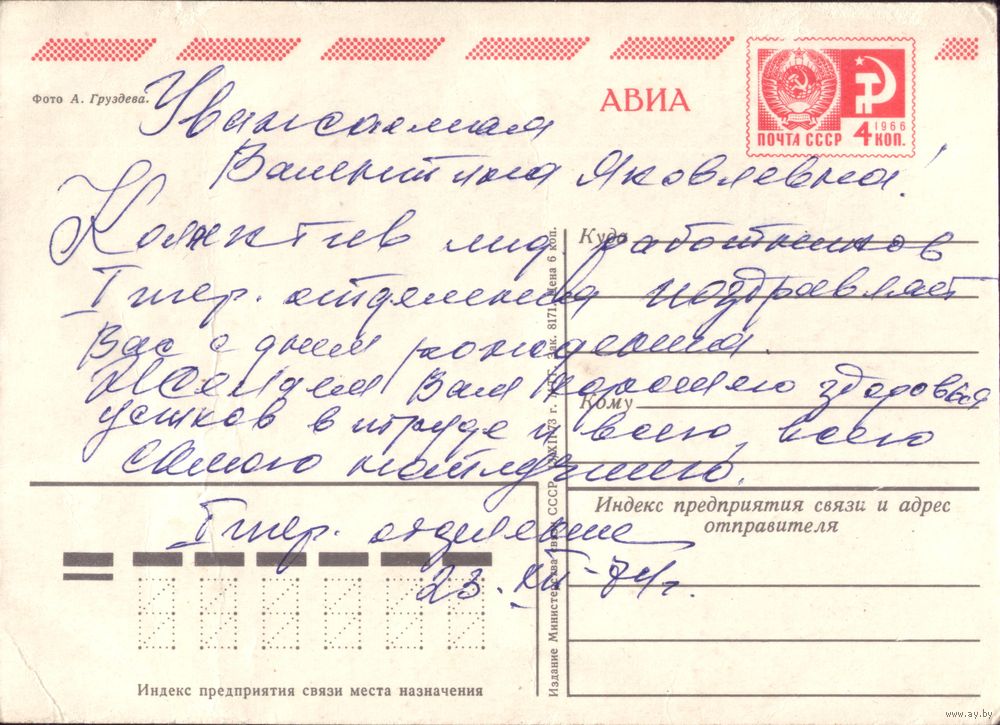 Фото А. Груздева.
АВИА
ПОЧТА СССР
1966
4 КОП.
Уважаемая
Валентина Яковлевна!
Коллектив мед. работников
I отделения поздравляет
Вас с днем рождения.
Желаем Вам хорошего здоровья
успехов в труде и всего, всего
самого наилучшего.
I отделение
23. XII-74г.
Куда
Кому
Индекс предприятия связи и адрес
отправителя
Издание Министерства связи СССР. XII-73 г. Зак. 8171. Цена 6 коп.
Индекс предприятия связи места назначения
www.ay.by